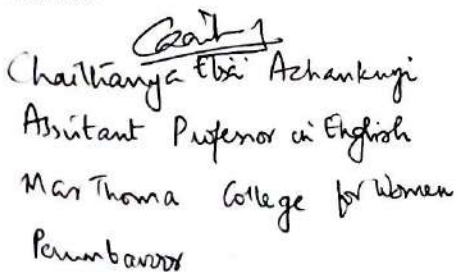 Chaithanya Elsa Achankunji
Assistant Professor in English
Mar Thoma College for Women
Perumbavoor